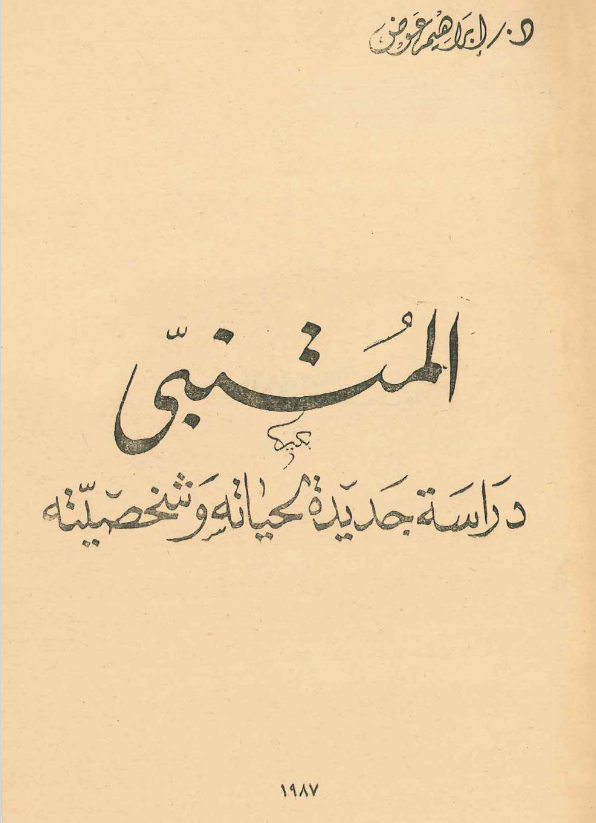 د. / إبراهيم عوض
المُتنبّى
دراسَة جَديدة لحياتهِ وَشخصيّته
١٩٨٧